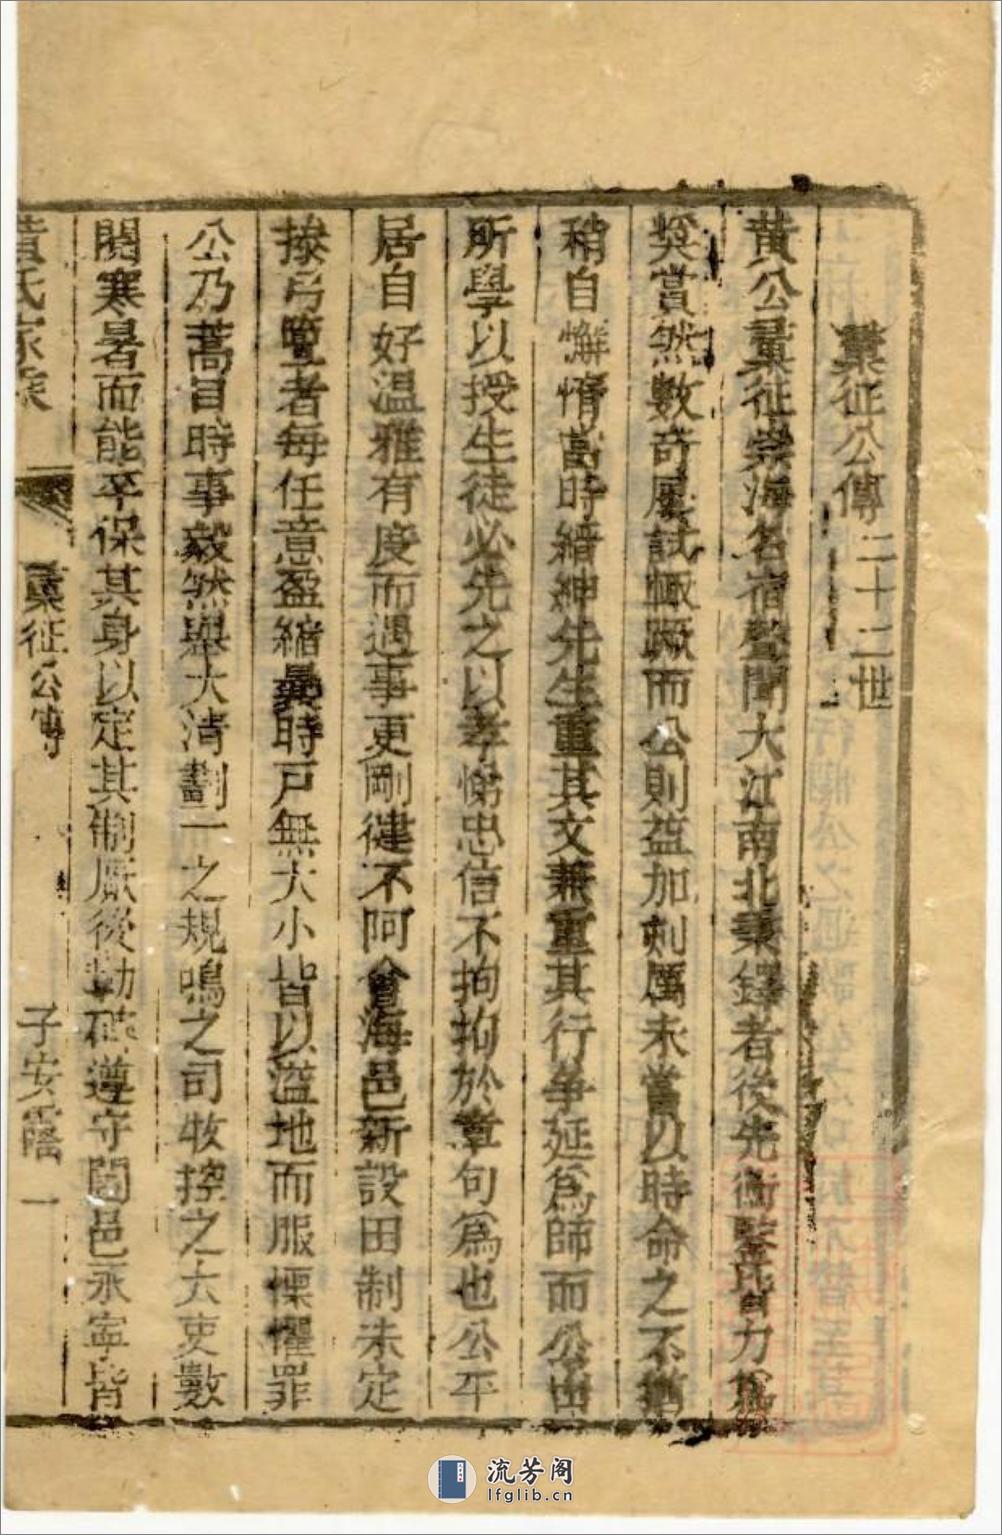 彙征公傳二十二世
黄公彙征崇海名宿聲聞大江南北秉鐸者後先衡鑒皆力爲
獎賞然數奇屢試輙蹶而公則益加刻厲未嘗以時命之不猶
稍自懈惰當時縉紳先生重其文兼重其行争延爲師而公出
所學以授生徒必先之以孝悌忠信不拘拘於章句爲也公平
居自好温雅有度而遇事更剛健不阿會海邑新設田制未定
操弓墾者每任意盈縮曩時戸無大小皆以溢地而服慄懼罪
公乃蒿目時事毅然與大清劃一之規鳴之司牧控之大吏數
閱寒暑而能卒保其身以定其制厥後勒碑遵守闔邑永寧皆
黄氏家乘
彙征公傳
子安蔭
一
流芳阁
lfglib.cn